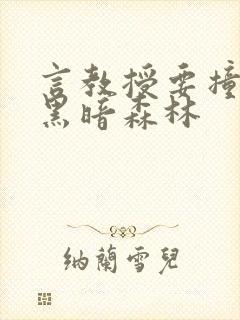 言教授要撞
黑暗森林
纳蘭雪兒